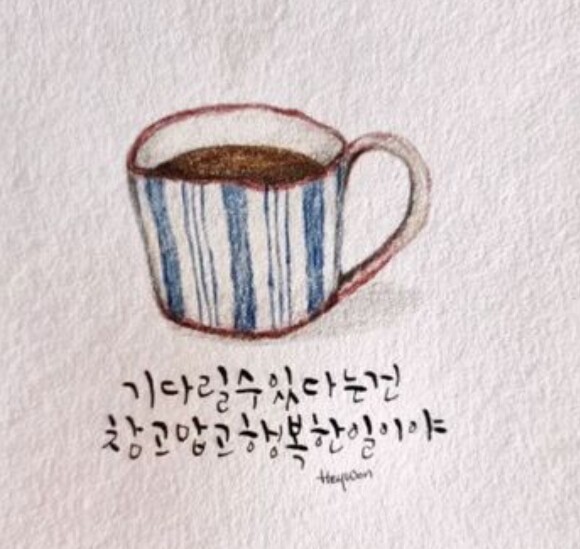 기다릴수있다는건
참고맙고행복한일이야
Heywon